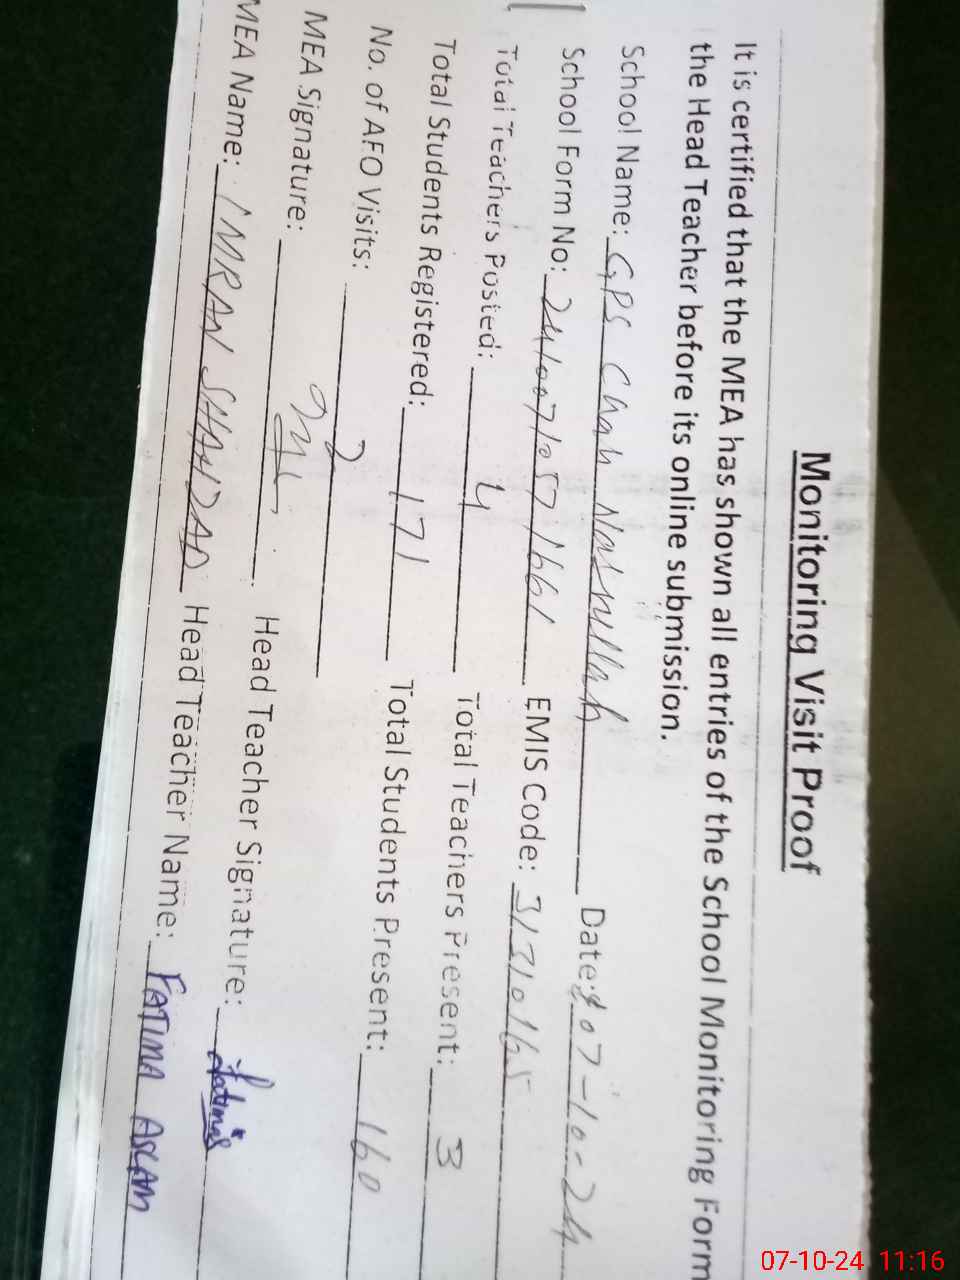 Monitoring Visit Proof
It is certified that the MEA has shown all entries of the School Monitoring Form
the Head Teacher before its online submission.
School Name: GPS Chah Nasrullah Date: 07-10-24
School Form No: EMIS Code: 31310165
Total Teachers Posted: 4 Total Teachers Present: 3
Total Students Registered: 171 Total Students Present: 160
No. of AFO Visits: 2
MEA Signature: Head Teacher Signature: Fatima
MEA Name: IMRAN SHAHZAD Head Teacher Name: FATIMA ASLAM
07-10-24 11:16